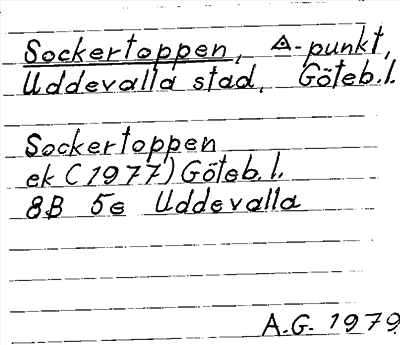 Sockertoppen, ⟁-punkt,
Uddevalla stad, Göteb.l.
Sockertoppen
ek (1977) Göteb.l.
8B 5e Uddevalla
A.G. 1979